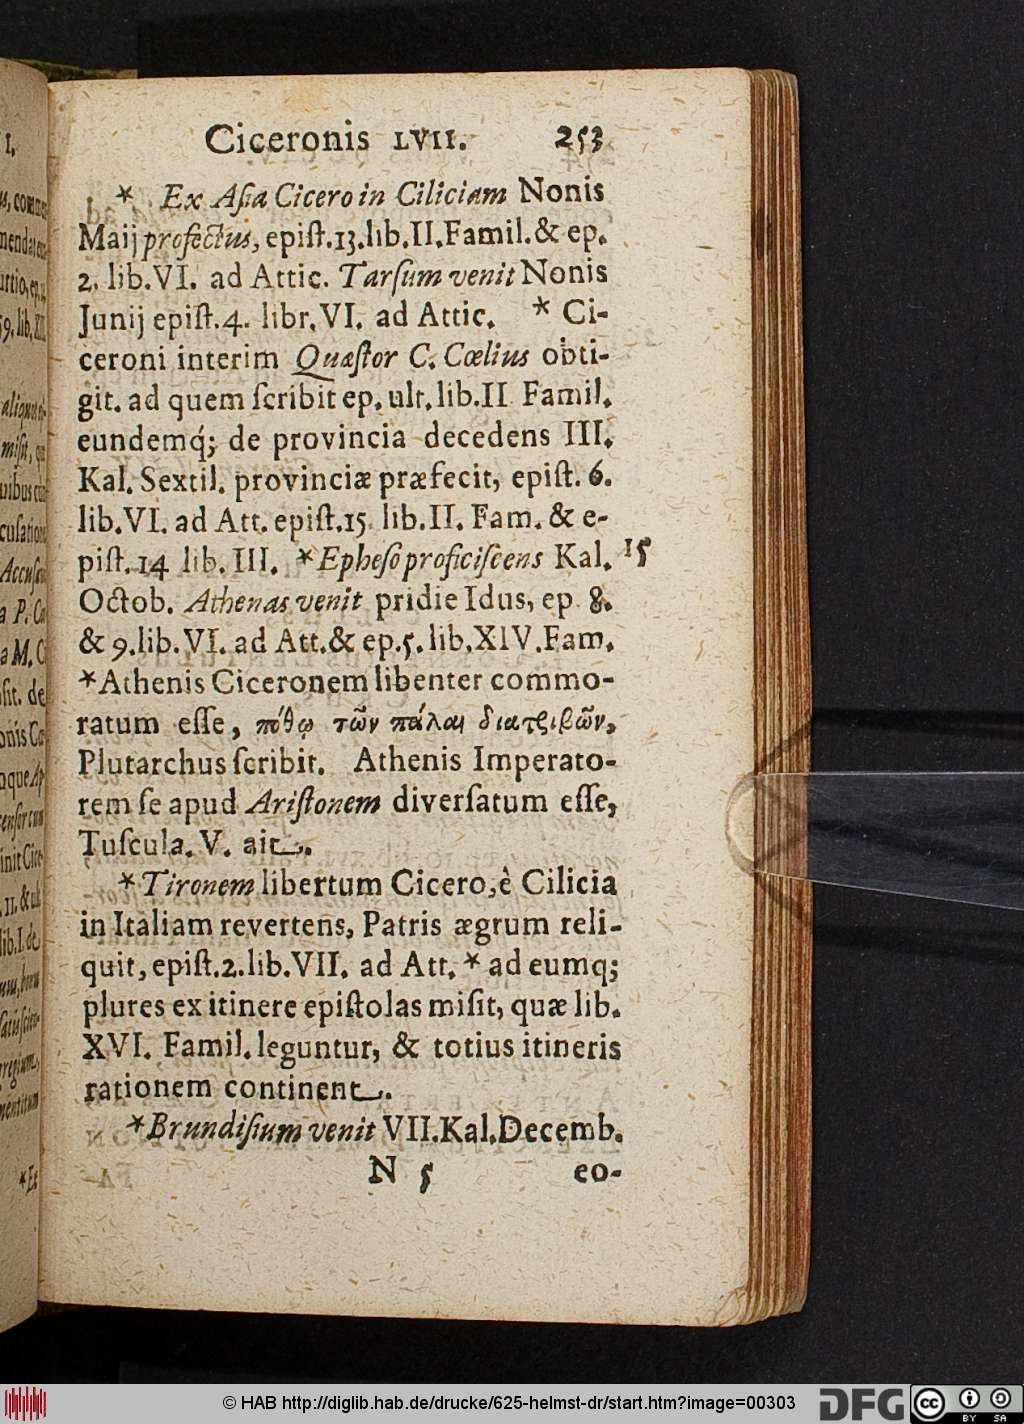 Ciceronis LVII. 253
* Ex Aſia Cicero in Ciliciam Nonis
Maij profectus, epiſt.13.lib.II.Famil.& ep.
2. lib.VI. ad Attic. Tarſum venit Nonis
Junij epiſt.4. libr.VI. ad Attic. * Ci-
ceroni interim Quæſtor C. Cœlius obti-
git. ad quem ſcribit ep. ult. lib.II Famil.
eundemq́; de provincia decedens III.
Kal. Sextil. provinciæ præfecit, epiſt. 6.
lib.VI. ad Att. epiſt.15 lib.II. Fam. & e-
piſt. 14 lib. III. * Epheſo proficiſcens Kal. 15
Octob. Athenas venit pridie Idus, ep 8.
& 9.lib.VI. ad Att.& ep.5. lib.XIV.Fam.
*Athenis Ciceronem libenter commo-
ratum eſſe, πόθῳ τῶν πάλαι διατριβῶν,
Plutarchus ſcribit. Athenis Imperato-
rem ſe apud Ariſtonem diverſatum eſſe,
Tuſcula. V. ait.
*Tironem libertum Cicero,è Cilicia
in Italiam revertens, Patris ægrum reli-
quit, epiſt.2.lib.VII. ad Att. * ad eumq;
plures ex itinere epiſtolas miſit, quæ lib.
XVI. Famil. leguntur, & totius itineris
rationem continent.
*Brundiſium venit VII.Kal.Decemb.
N 5 eo-
© HAB http://diglib.hab.de/drucke/625-helmst-dr/start.htm?image=00303
DFG
cc
BY SA